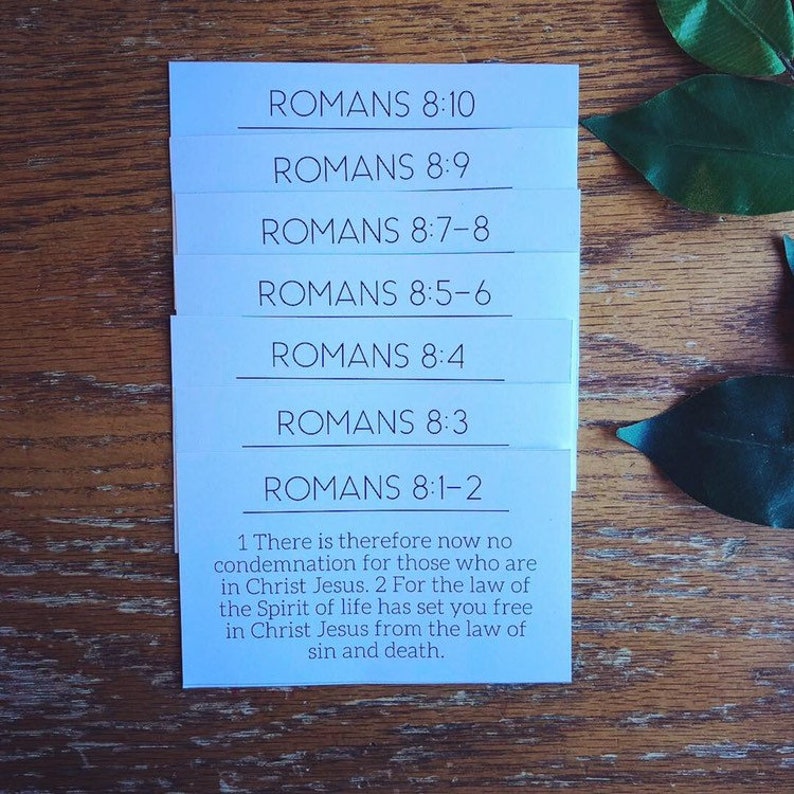 ROMANS 8:10
ROMANS 8:9
ROMANS 8:7-8
ROMANS 8:5-6
ROMANS 8:4
ROMANS 8:3
ROMANS 8:1-2
1 There is therefore now no
condemnation for those who are
in Christ Jesus. 2 For the law of
the Spirit of life has set you free
in Christ Jesus from the law of
sin and death.